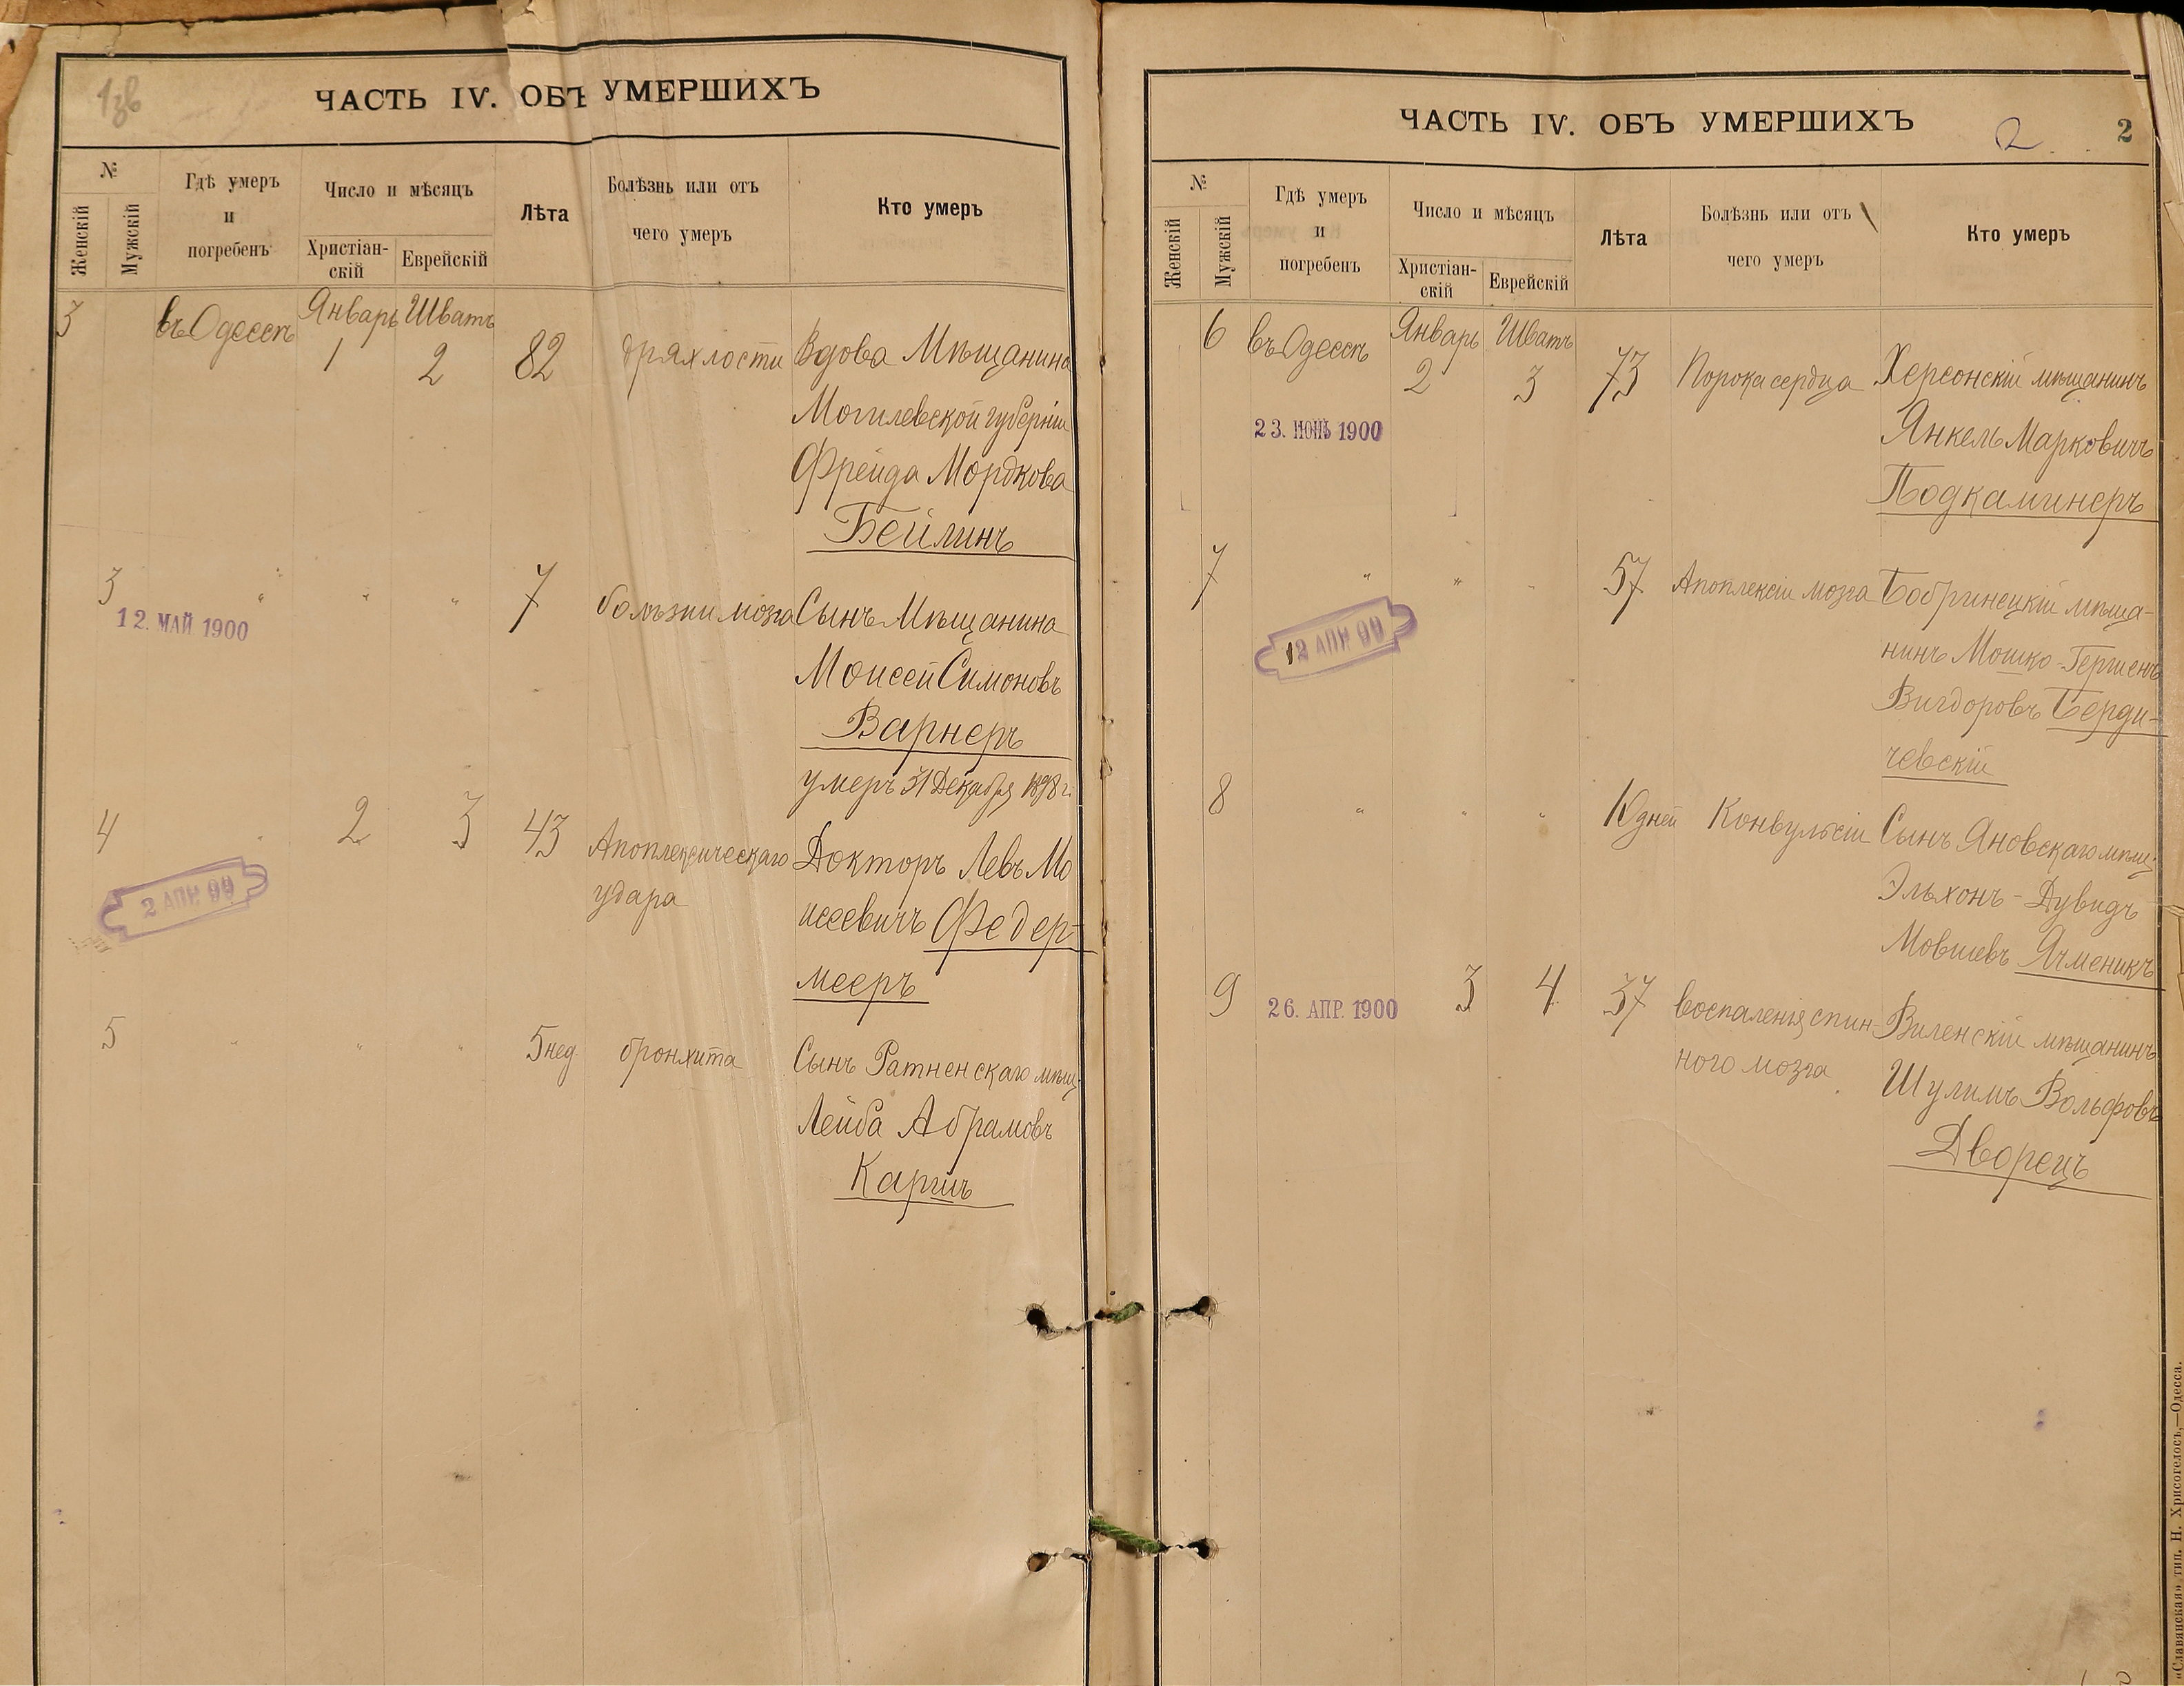 1зв
ЧАСТЬ IV. ОБЪ УМЕРШИХЪ
№
Женскій
Мужскій
Гдѣ умеръ
и
погребенъ
Число и мѣсяцъ
Христіан-
скій
Еврейскій
Лѣта
Болѣзнь или отъ
чего умеръ
Кто умеръ
3 въ Одессѣ Январь Шватъ
1 2 82 дряхлости Вдова Мѣщанина
Могилевской губерніи
Фрейда Мордкова
Бейлинъ
3 " " " 7 болѣзни мозга Сынъ Мѣщанина
12. МАЙ 1900
Моисей Симоновъ
Варнеръ
умеръ 31 Декабря 1898 г.
4 " 2 3 43 Апоплексическаго Докторъ Левъ Мо
2 АПР 99
удара исеевичъ Федер-
мееръ
5 " " " 5 нед. бронхита Сынъ Ратненскаго мѣщ.
Лейба Абрамовъ
Каршъ
ЧАСТЬ IV. ОБЪ УМЕРШИХЪ
2 2
№
Женскій
Мужскій
Гдѣ умеръ
и
погребенъ
Число и мѣсяцъ
Христіан-
скій
Еврейскій
Лѣта
Болѣзнь или отъ
чего умеръ
Кто умеръ
6 въ Одессѣ Январь Шватъ
2 3 73 Порока сердца Херсонскій мѣщанинъ
23. ІЮНЬ 1900
Янкель Марковичъ
Подкаминеръ
7 " " " 57 Апоплексіи мозга Бобринецкій мѣща-
12 АПР 99
нинъ Мошко-Гершенъ
Вигдоровъ Берди-
чевскій
8 " " " 10 дней Конвульсіи Сынъ Яновскаго мѣщ.
Эльхонъ-Дувидъ
Мовшевъ Ячменикъ
9 26. АПР. 1900 3 4 37 воспаленія спин- Виленскій мѣщанинъ
ного мозга Шулимъ Вольфовъ
Дворецъ
«Славянская» тип. Н. Хрисогелосъ,—Одесса.